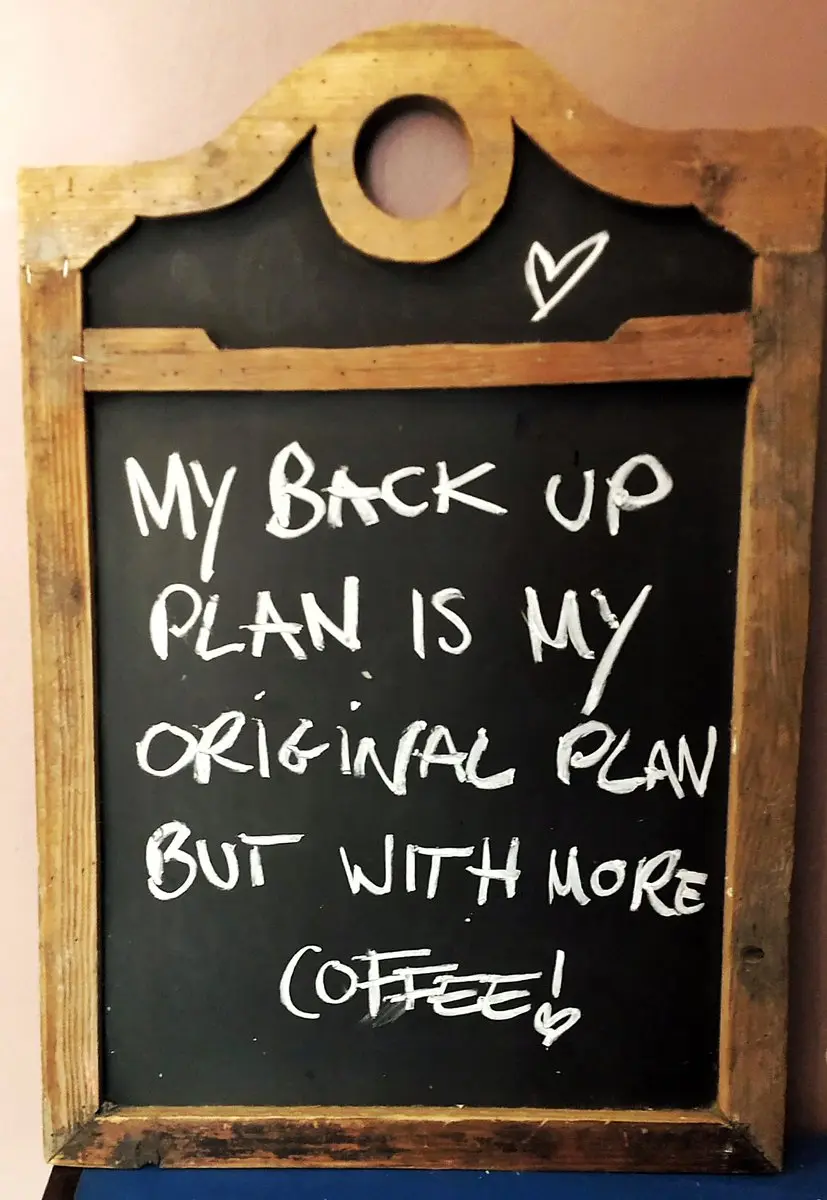 MY BACK UP
PLAN IS MY
ORIGINAL PLAN
BUT WITH MORE
COFFEE!